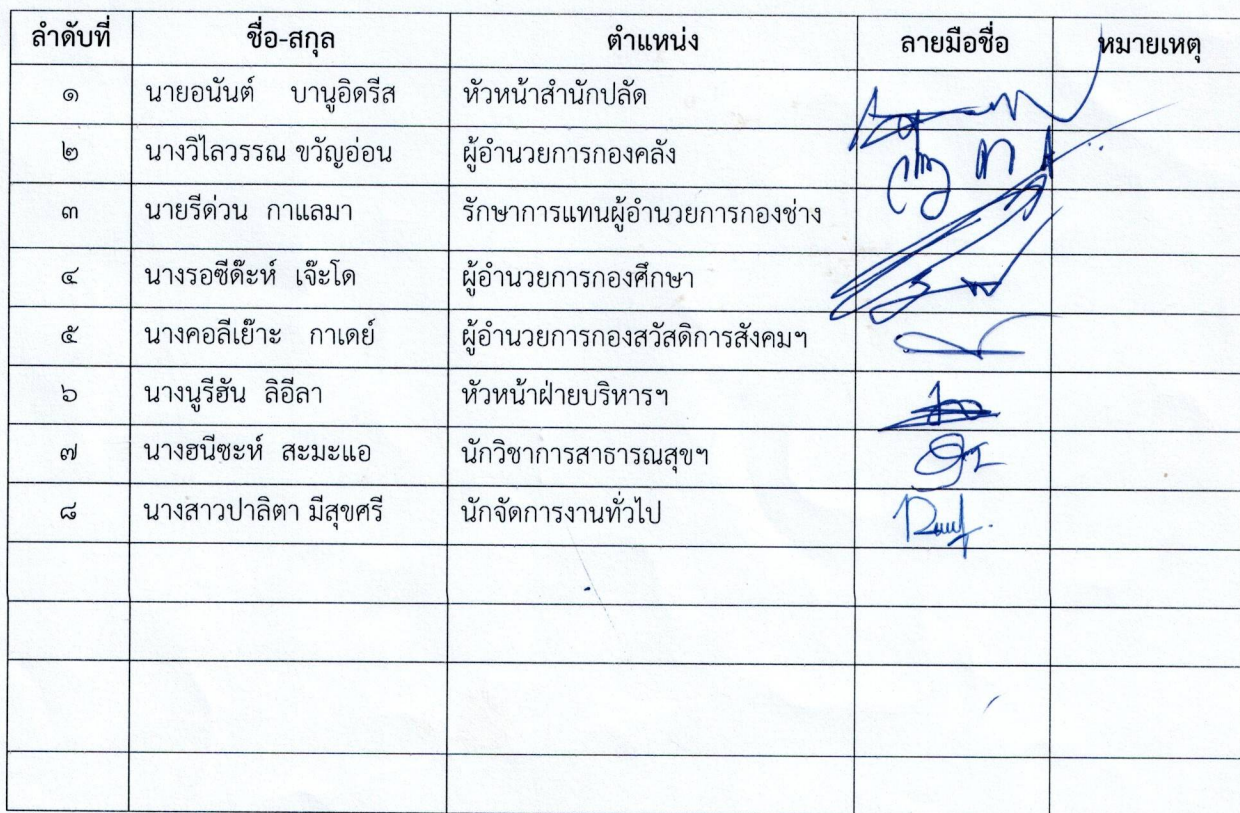 ลำดับที่ ชื่อ-สกุล ตำแหน่ง ลายมือชื่อ หมายเหตุ
๑ นายอนันต์ บานูอิดรีส หัวหน้าสำนักปลัด
๒ นางวิไลวรรณ ขวัญอ่อน ผู้อำนวยการกองคลัง
๓ นายรีด่วน กาแลมา รักษาการแทนผู้อำนวยการกองช่าง
๔ นางรอซีด๊ะห์ เจ๊ะโด ผู้อำนวยการกองศึกษา
๕ นางคอลีเย๊าะ กาเดย์ ผู้อำนวยการกองสวัสดิการสังคมฯ
๖ นางนูรีฮัน ลิอีลา หัวหน้าฝ่ายบริหารฯ
๗ นางฮนีซะห์ สะมะแอ นักวิชาการสาธารณสุขฯ
๘ นางสาวปาลิตา มีสุขศรี นักจัดการงานทั่วไป